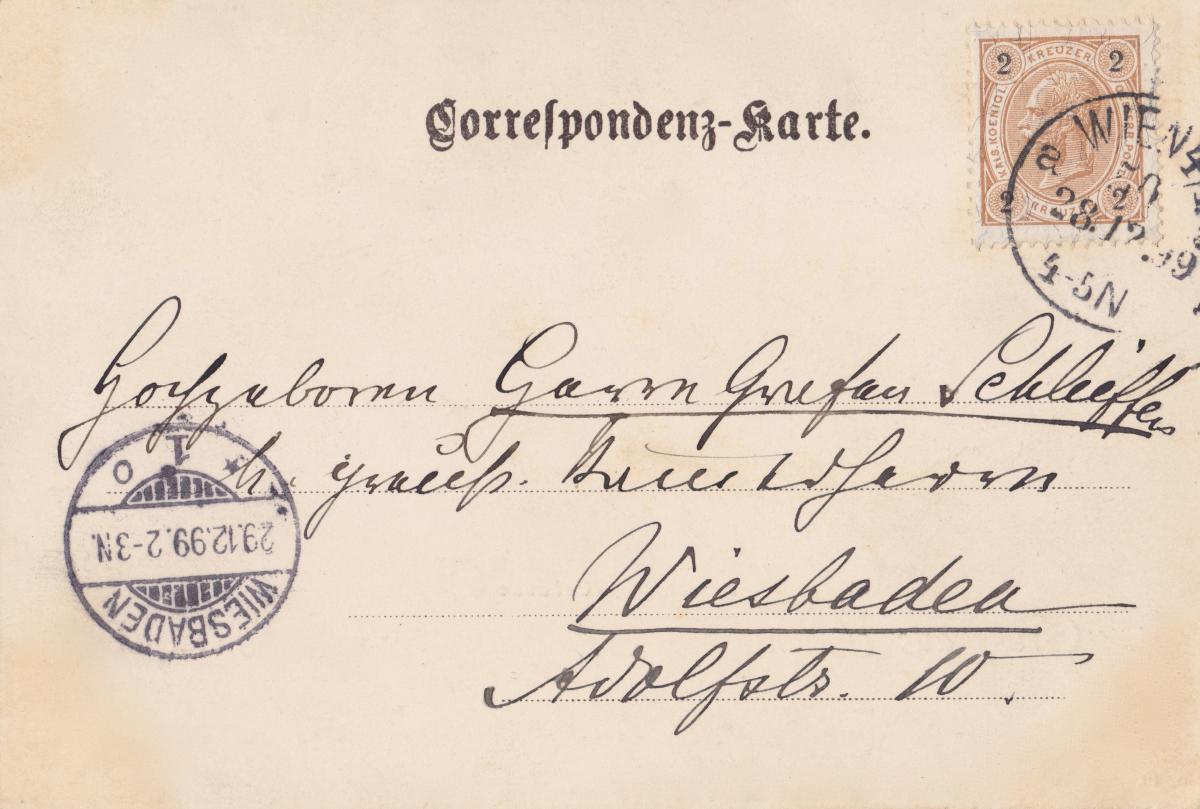 Correspondenz-Karte.
2 KREUZER 2
KAIS. KOENIGL.
2 KREUZER 2
WIEN 4/1
28.12.99
4-5N
Hochgeboren Herrn Grafen Schlieffen
k. preuß. Kammerherrn
Wiesbaden
Adolfstr. 10.
WIESBADEN
29.12.99. 2-3N.
1 o